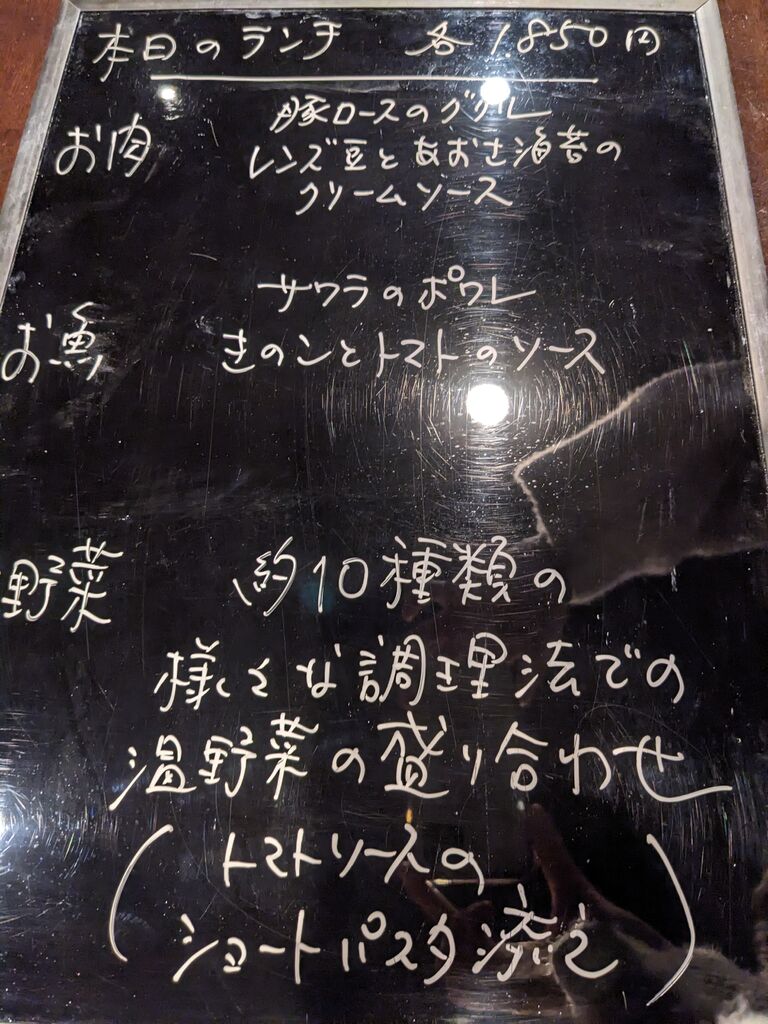 本日のランチ 各1850円
お肉 豚ロースのグリル
レンズ豆とあおさ海苔の
クリームソース
お魚 サワラのポワレ
きのことトマトのソース
野菜 約10種類の
様々な調理法での
温野菜の盛り合わせ
(トマトソースの
ショートパスタ添え)